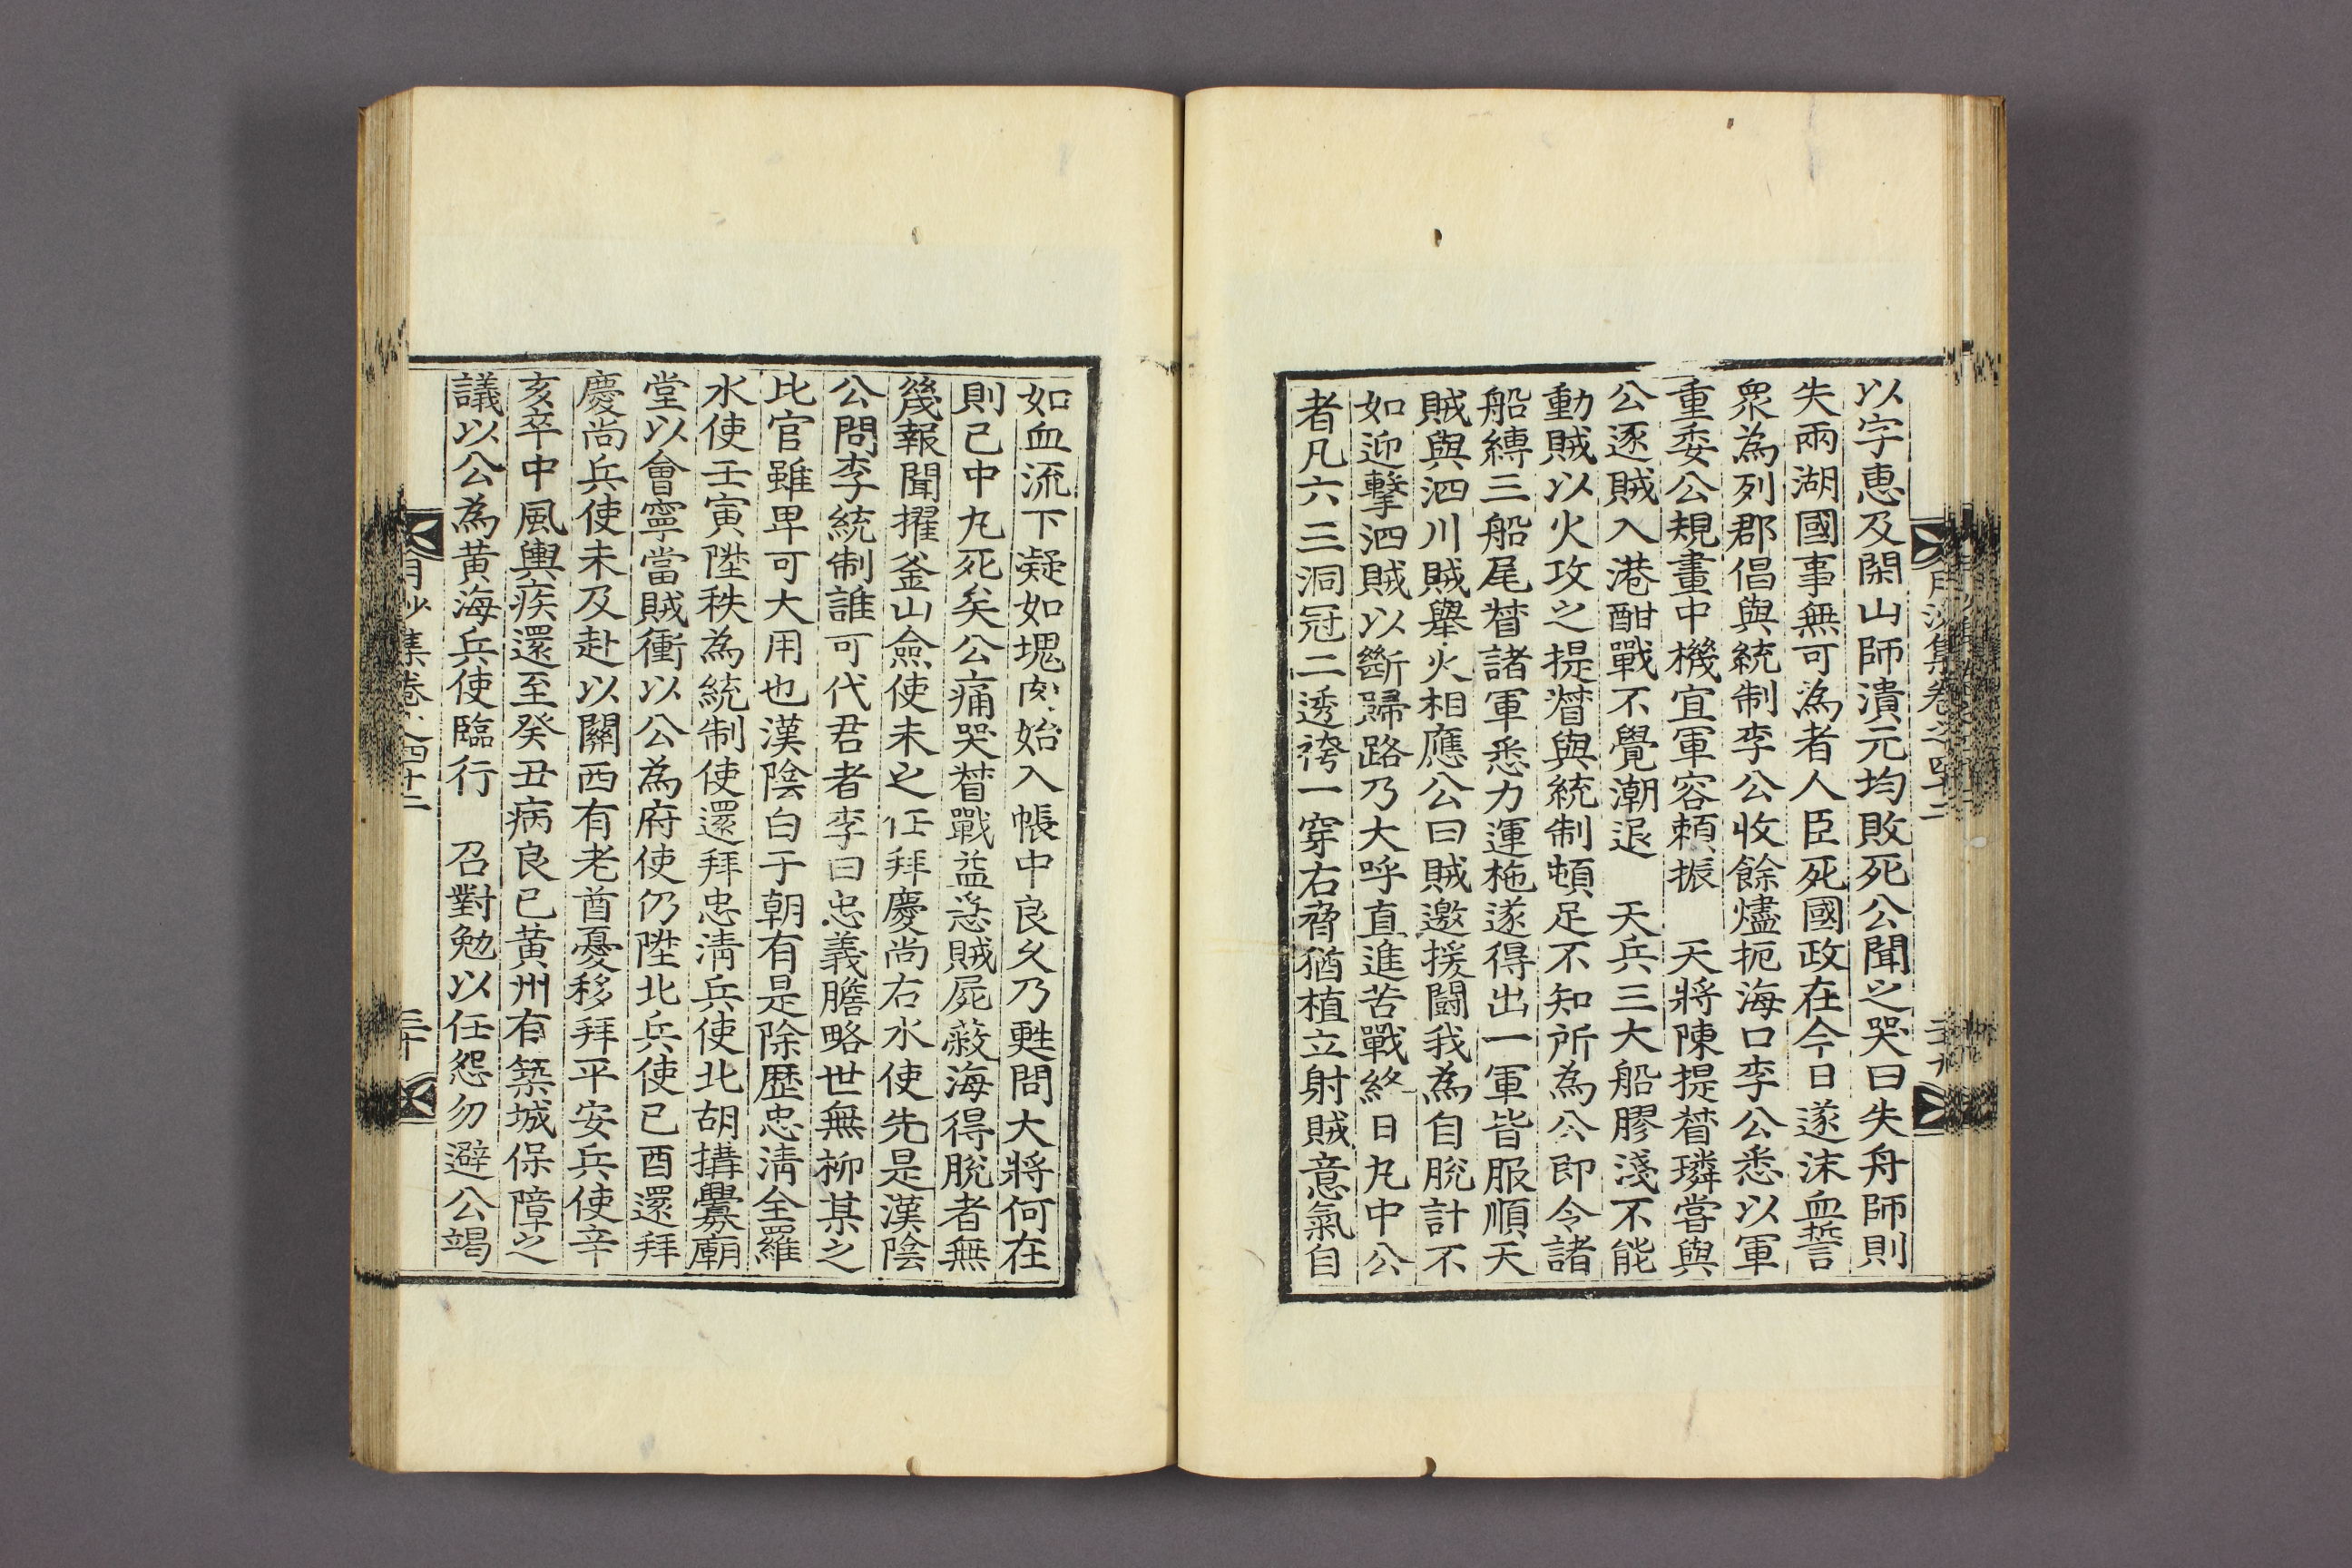 以字惠及閑山師潰元均敗死公聞之哭曰失舟師則
失兩湖國事無可為者人臣死國政在今日遂沫血誓
衆為列郡倡與統制李公收餘燼扼海口李公悉以軍
重委公規畫中機宜軍容頼振 天將陳提督璘嘗與
公逐賊入港酣戰不覺潮退 天兵三大船膠淺不能
動賊以火攻之提督與統制頓足不知所為公即令諸
船縳三船尾督諸軍悉力運柂遂得出一軍皆服順天
賊與泗川賊舉火相應公曰賊邀援闘我為自脫計不
如迎擊泗賊以斷歸路乃大呼直進苦戰終日丸中公
者凡六三洞冠二透袴一穿右脅猶植立射賊意氣自
月沙集卷之四十二
二十九
如血流下凝如塊肉始入帳中良久乃甦問大將何在
則已中丸死矣公痛哭督戰益急賊屍蔽海得脫者無
幾報聞擢釜山僉使未之任拜慶尚右水使先是漢陰
公問李統制誰可代君者李曰忠義膽略世無柳某之
比官雖卑可大用也漢陰白于朝有是除歷忠淸全羅
水使壬寅陞秩為統制使還拜忠淸兵使北胡搆釁廟
堂以會寧當賊衝以公為府使仍陞北兵使已酉還拜
慶尚兵使未及赴以關西有老酋憂移拜平安兵使辛
亥卒中風輿疾還至癸丑病良已黃州有築城保障之
議以公為黃海兵使臨行 召對勉以任怨勿避公竭
月沙集卷之四十二
三十